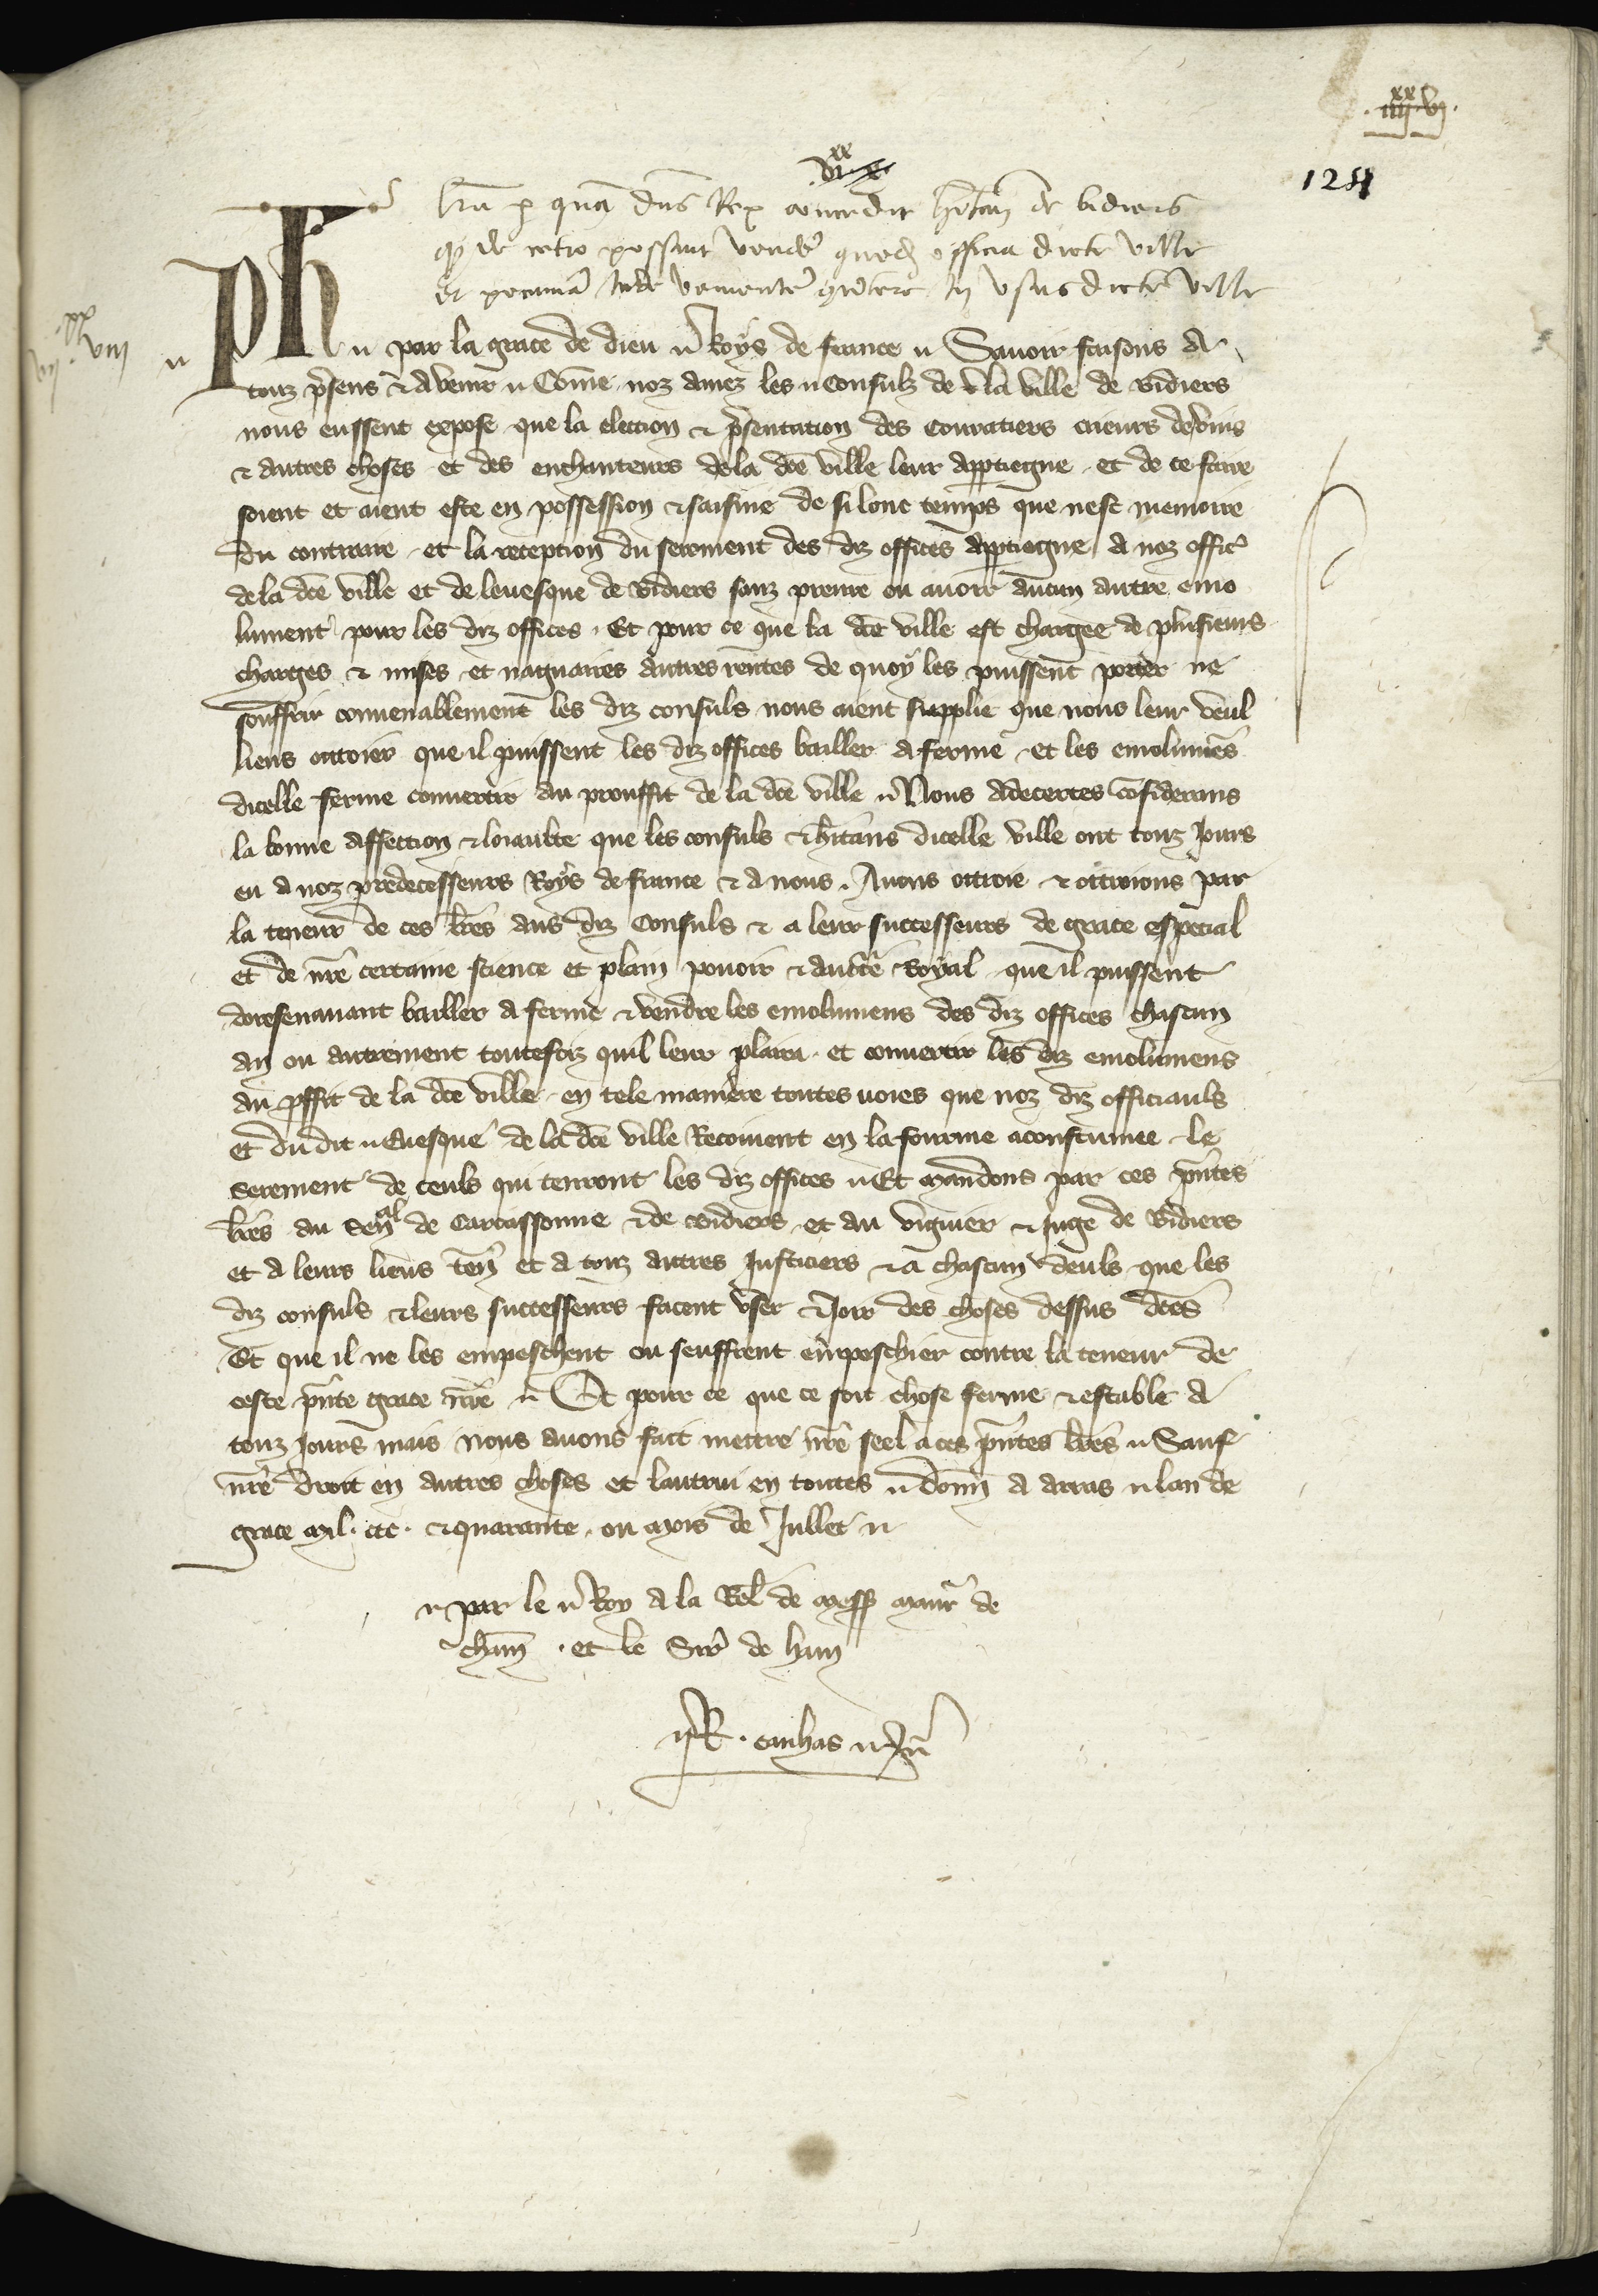 .iiii xx vi.
124
vi xx x
lr̃a p quā dñs Rex concedit hitan de bidieris
qđ de cetro possint vender̃ quedã officia dicte ville
Et pecuniã inde venientẽ convertere in usus dicte ville
Ph par la grace de dieu Roys de france Savoir faisons a
touz p̃sens & avenir Come noz amez les Consulz de la ville de Bidiers
nous eussent expose que la election & p̃sentation des Couratiers crieurs de vins
& autres choses et des enchanteurs de la dce ville leur apptiegne et de ce faire
soient et aient este en possession & saisine de si lonc temps que nest memoire
du contraire et la reception du serement des diz offices apptiegne a noz offic
de la dce ville et de levesque de Bidiers sanz prenre ou avoir aucun autre emo
lument pour les diz offices Et pour ce que la dce ville est chargee de plusieurs
charges & mises et naguaires autres rentes de quoy les puissent porter ne
souffrir convenablement les diz consuls nous aient supplie que nous leur veul
liens ottroier que il puissent les diz offices bailler a ferme et les emolumẽs
dicelle ferme convertir au prouffit de la dce ville Nous adecertes cõsiderans
la bonne affection & loiaulte que les consuls & hitans dicelle ville ont touz jours
eu a noz predecesseurs Roys de france & a nous Avons ottroie & ottroions par
la teneur de ces lres aus diz Consuls & a leur successeurs de grace especial
et de nr̃e certaine science et plain povoir & auctẽ Royal que il puissent
doresenavant bailler a ferme & vendre les emolumens des diz offices chascun
an ou autrement toutesfoiz quil leur plaira et convertir les diz emolumens
au pffit de la dce ville en tele maniere toutes voies que noz diz officiauls
et du dit Evesque de la dce ville Recoivent en la fourme acoustumee le
serement de ceuls qui tenront les diz offices Et mandons par ces p̃ntes
lr̃es au Senal de Carcassonne & de Bidiers et au viguier & juge de Bidiers
et a leurs lieus ten̄ et a touz autres justiciers & a chascun deuls que les
diz consuls & leurs successeurs facent user & joir des choses dessus dces
Et que il ne les empeschent ou seuffrent empeschier contre la teneur de
ceste p̃nte grace nr̃e Et pour ce que ce soit chose ferme & estable a
touz jours mais Nous avons fait mettre nr̃e seel a ces p̃ntes lr̃es Sauf
nr̃e droit en autres choses et lautrui en toutes donn̄ a arras lan de
grace mil. ccc. & quarante ou mois de Jullet
par le Roy a la Rel de mess̃
cham̄ . et le Sire de ham